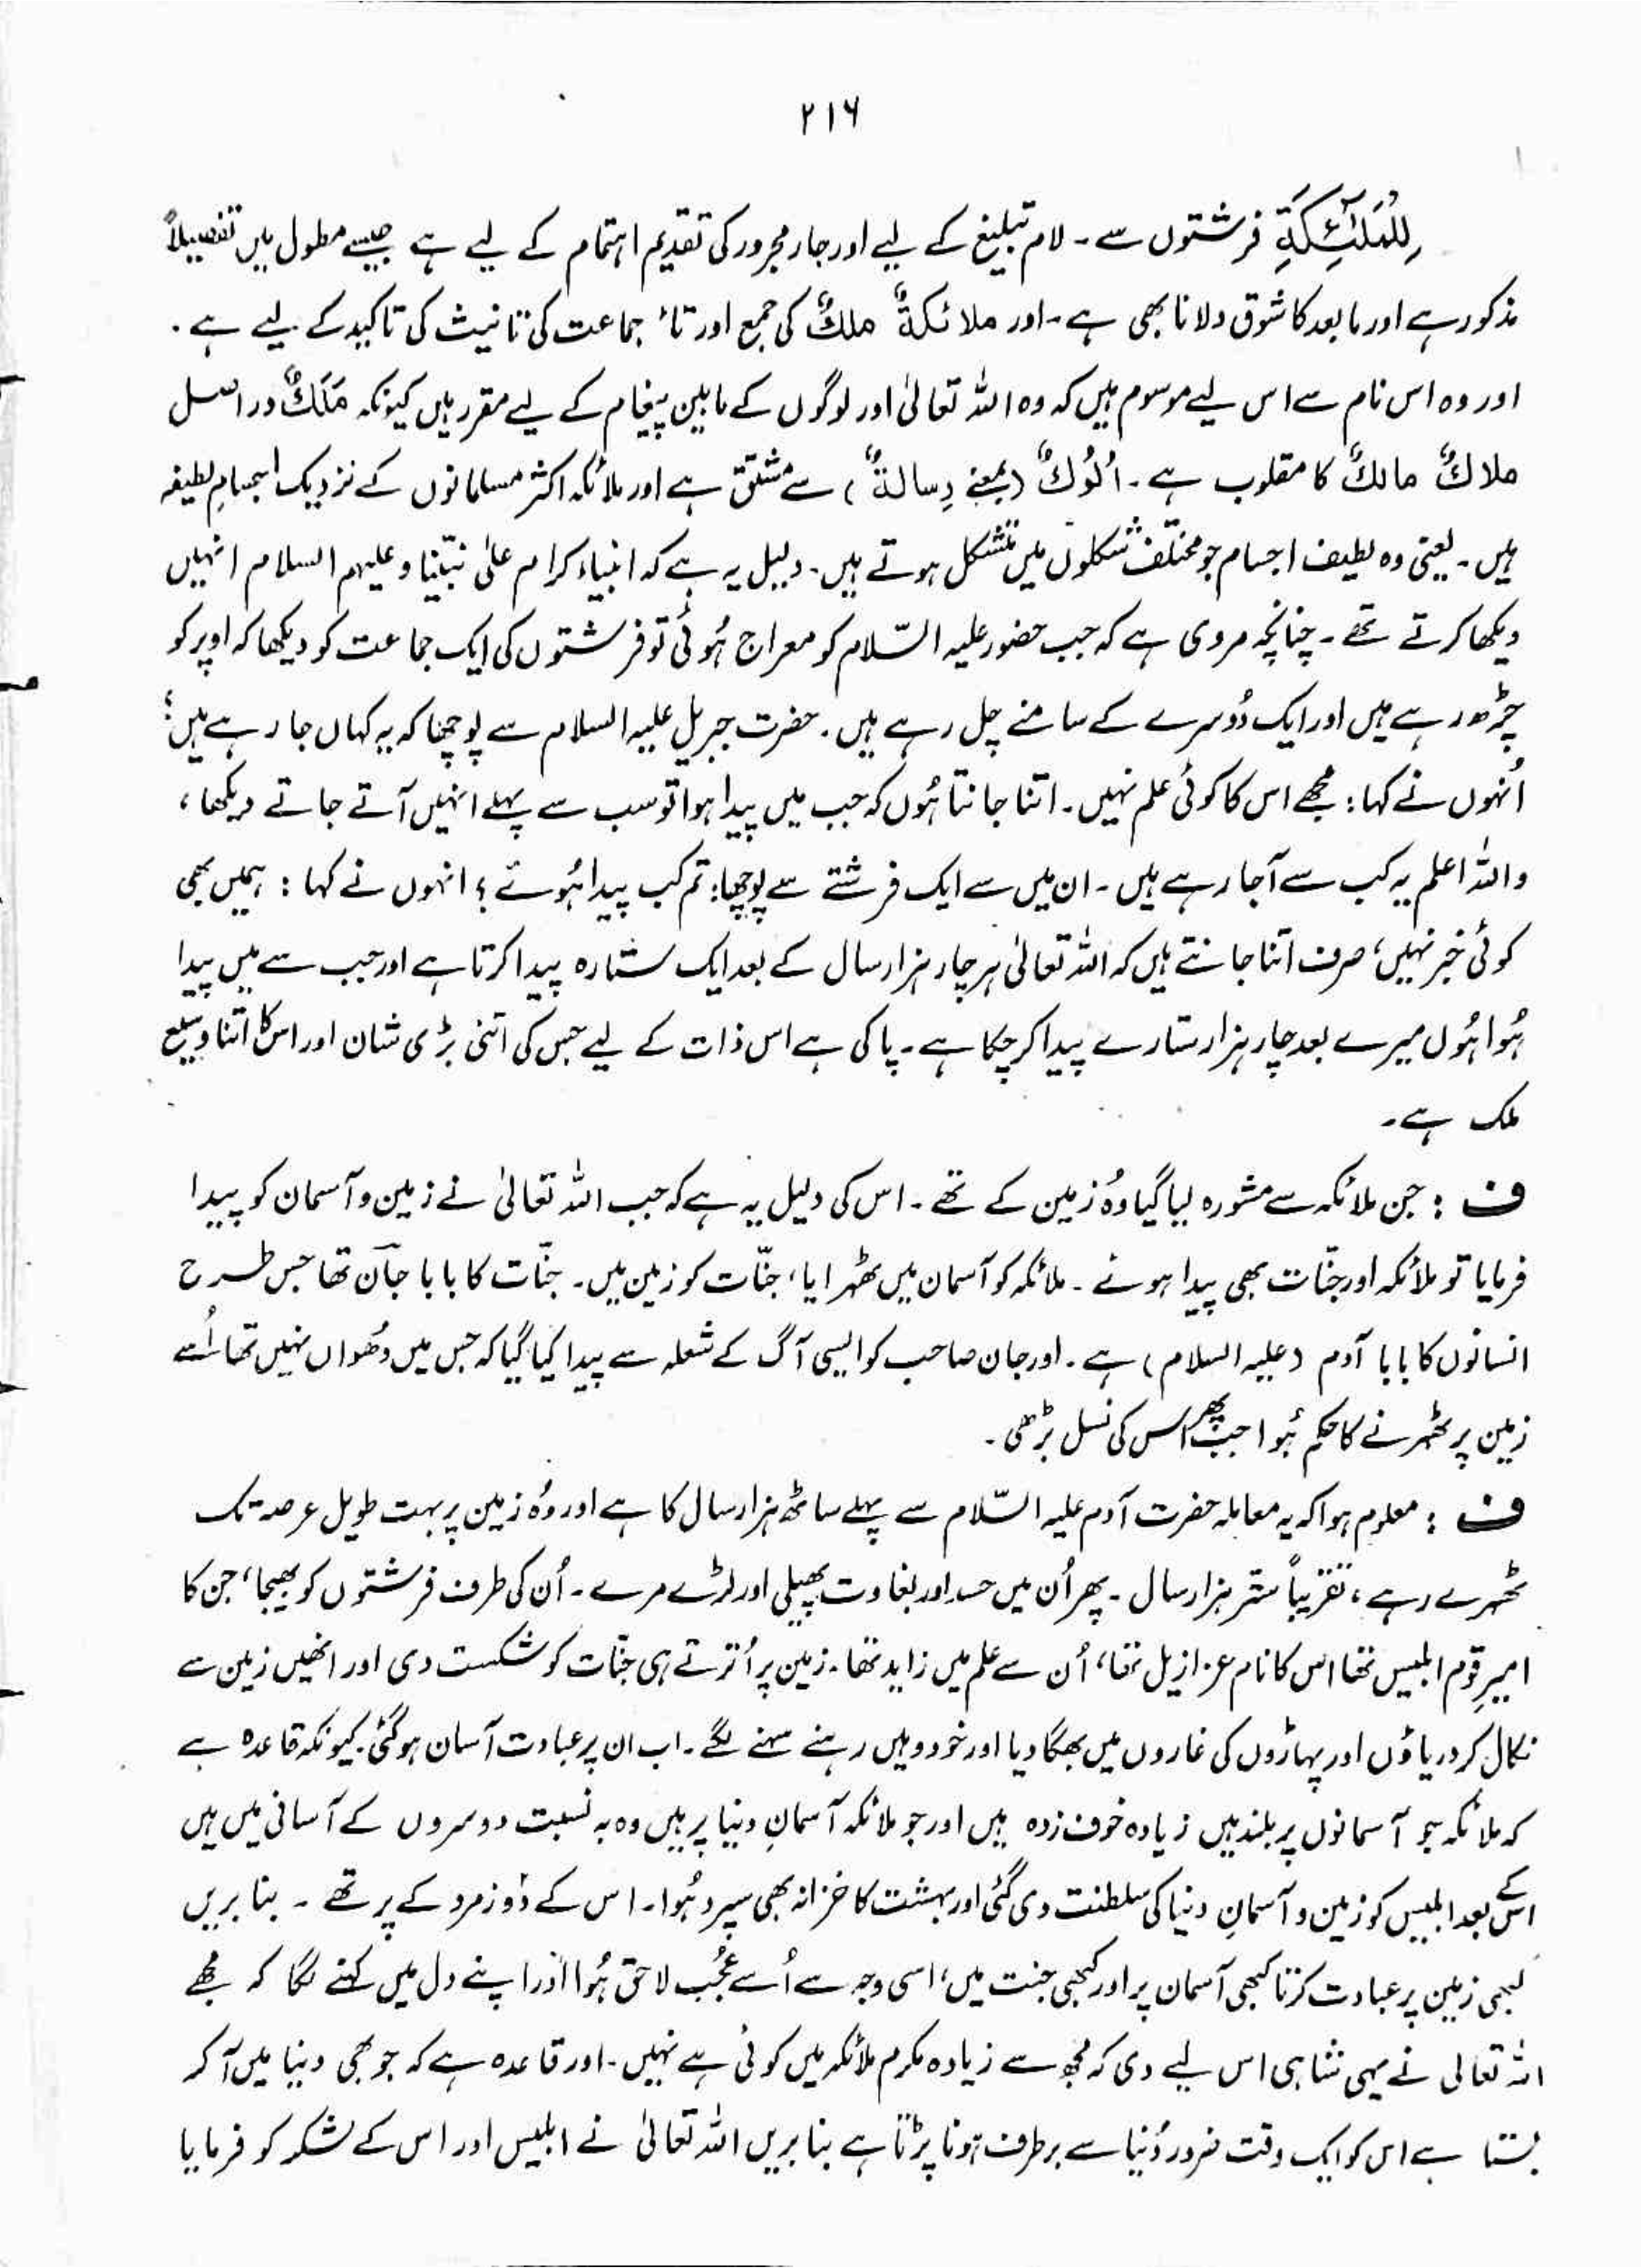 ۲۱۶
لِلْمَلٰٓئِكَةِ فرشتوں سے۔ لام تبلیغ کے لیے اور جار مجرور کی تقدیم اہتمام کے لیے ہے جیسے مطول میں تفصیلاً
مذکور ہے اور مابعد کا شوق دلانا بھی ہے۔ اور ملائکۃٌ ملكٌ کی جمع اور تاء جماعت کی تانیث کی تاکید کے لیے ہے۔
اور وہ اس نام سے اس لیے موسوم ہیں کہ وہ اللہ تعالیٰ اور لوگوں کے مابین پیغام کے لیے مقرر ہیں کیونکہ مَلَكٌ دراصل
ملاكٌ مالكٌ کا مقلوب ہے۔ اُلُوكٌ (بمعنے رِسالةٌ) سے مشتق ہے اور ملائکہ اکثر مسلمانوں کے نزدیک اجسامِ لطیفہ
ہیں۔ یعنی وہ لطیف اجسام جو مختلف شکلوں میں متشکل ہوتے ہیں۔ دلیل یہ ہے کہ انبیاء کرام علیٰ نبیّنا وعلیہم السلام انہیں
دیکھا کرتے تھے۔ چنانچہ مروی ہے کہ جب حضور علیہ السّلام کو معراج ہُوئی تو فرشتوں کی ایک جماعت کو دیکھا کہ اوپر کو
چڑھ رہے ہیں اور ایک دُوسرے کے سامنے چل رہے ہیں۔ حضرت جبریل علیہ السلام سے پوچھا کہ یہ کہاں جا رہے ہیں؟
اُنہوں نے کہا: مجھے اس کا کوئی علم نہیں۔ اتنا جانتا ہُوں کہ جب میں پیدا ہوا تو سب سے پہلے انہیں آتے جاتے دیکھا،
واللہ اعلم یہ کب سے آجا رہے ہیں۔ ان میں سے ایک فرشتے سے پوچھا: تم کب پیدا ہُوئے؟ انہوں نے کہا: ہمیں بھی
کوئی خبر نہیں، صرف اتنا جانتے ہیں کہ اللہ تعالیٰ ہر چار ہزار سال کے بعد ایک ستارہ پیدا کرتا ہے اور جب سے میں پیدا
ہُوا ہُوں میرے بعد چار ہزار ستارے پیدا کر چکا ہے۔ پاکی ہے اس ذات کے لیے جس کی اتنی بڑی شان اور اس کا اتنا وسیع
ملک ہے۔
ف: جن ملائکہ سے مشورہ لیا گیا وہُ زمین کے تھے۔ اس کی دلیل یہ ہے کہ جب اللہ تعالیٰ نے زمین و آسمان کو پیدا
فرمایا تو ملائکہ اور جنّات بھی پیدا ہوئے۔ ملائکہ کو آسمان میں ٹھہرایا، جنّات کو زمین میں۔ جنّات کا بابا جآن تھا جس طرح
انسانوں کا بابا آدم (علیہ السلام) ہے۔ اور جان صاحب کو ایسی آگ کے شعلہ سے پیدا کیا گیا کہ جس میں دُھواں نہیں تھا اُسے
زمین پر ٹھہرنے کا حکم ہُوا جب پھر اس کی نسل بڑھی۔
ف: معلوم ہوا کہ یہ معاملہ حضرت آدم علیہ السّلام سے پہلے ساٹھ ہزار سال کا ہے اور وہُ زمین پر بہت طویل عرصہ تک
ٹھہرے رہے، تقریباً ستّر ہزار سال۔ پھر اُن میں حسد اور بغاوت پھیلی اور لڑے مرے۔ اُن کی طرف فرشتوں کو بھیجا، جن کا
امیرِ قوم ابلیس تھا اس کا نام عزازیل تھا، اُن سے علم میں زاید تھا۔ زمین پر اُترتے ہی جنّات کو شکست دی اور انھیں زمین سے
نکال کر دریاؤں اور پہاڑوں کی غاروں میں بھگا دیا اور خود وہیں رہنے سہنے لگے۔ اب ان پر عبادت آسان ہوگئی کیونکہ قاعدہ ہے
کہ ملائکہ جو آسمانوں پر بلند ہیں زیادہ خوف زدہ ہیں اور جو ملائکہ آسمانِ دنیا پر ہیں وہ بہ نسبت دوسروں کے آسانی میں ہیں
اس کے بعد ابلیس کو زمین و آسمانِ دنیا کی سلطنت دی گئی اور بہشت کا خزانہ بھی سپرد ہُوا۔ اس کے دُو زمرد کے پر تھے۔ بنا بریں
کبھی زمین پر عبادت کرتا کبھی آسمان پر اور کبھی جنت میں، اسی وجہ سے اُسے عُجُب لاحق ہُوا اور اپنے دل میں کہنے لگا کہ مجھے
اللہ تعالی نے یہی شاہی اس لیے دی کہ مجھ سے زیادہ مکرم ملائکہ میں کوئی ہے نہیں۔ اور قاعدہ ہے کہ جو بھی دنیا میں آ کر
بستا ہے اس کو ایک وقت ضرور دُنیا سے برطرف ہونا پڑتا ہے بنا بریں اللہ تعالیٰ نے ابلیس اور اس کے لشکر کو فرمایا